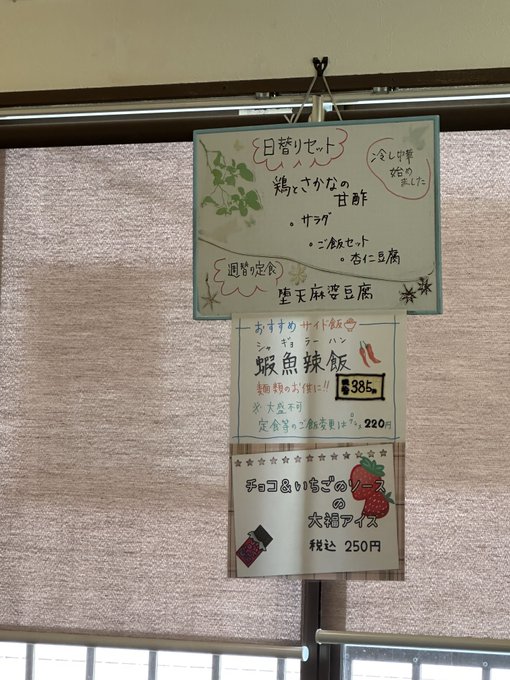 日替りセット
冷し中華
始め
ました
鶏とさかなの
甘酢
・サラダ
・ご飯セット
・杏仁豆腐
週替り定食
堕天麻婆豆腐
おすすめサイド飯
シャ ギョ ラー ハン
蝦魚辣飯
麺類のお供に!!
385
※大盛不可
定食等のご飯変更は 220円
チョコ&いちごのソース
の
大福アイス
税込 250円